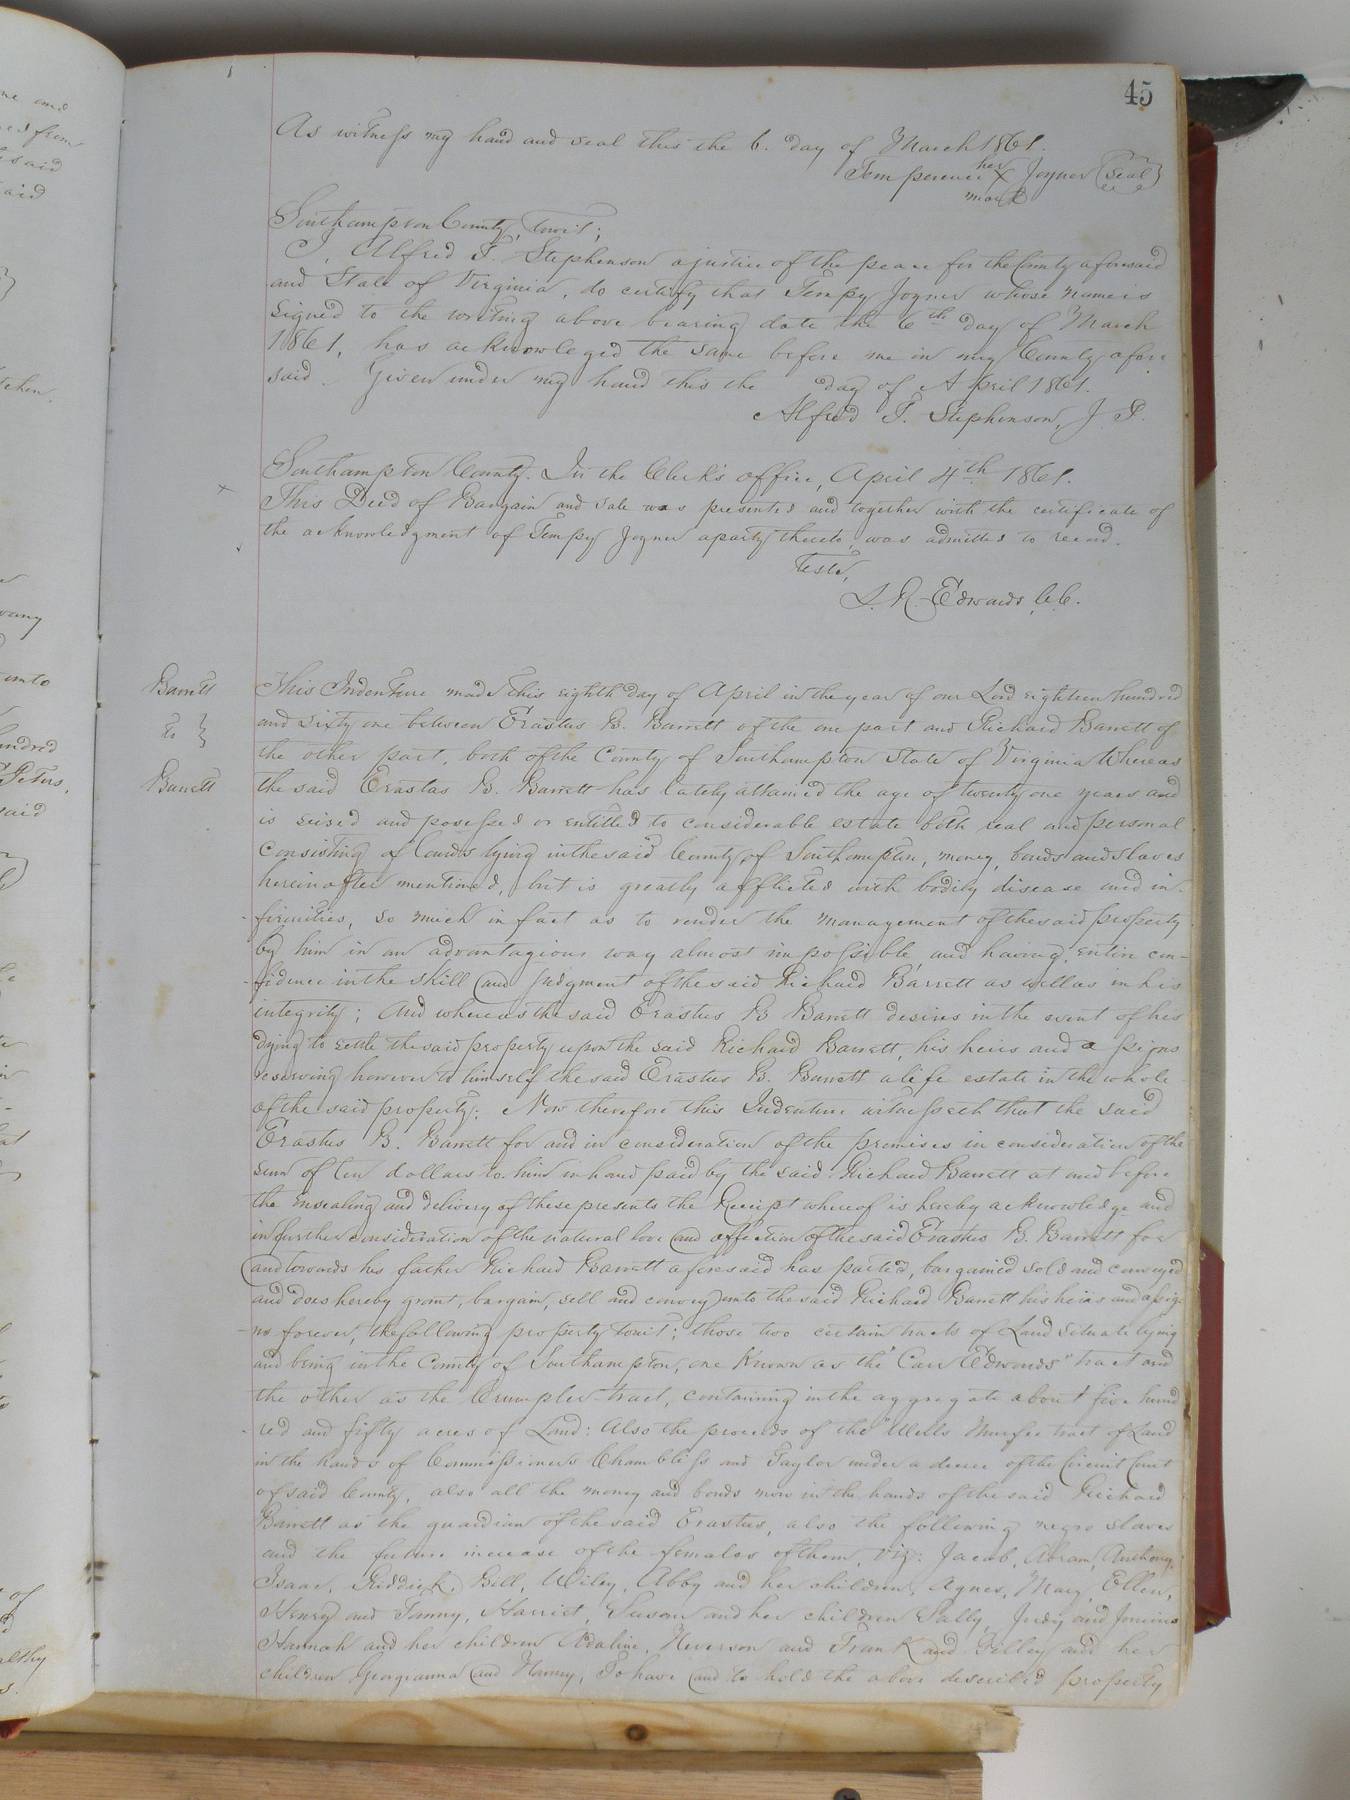 45
As witness my hand and seal this the 6. day of March 1861.
Temperence her X Joyner (Seal)
mark
Southampton County, towit;
I, Alfred T. Stephenson a justice of the peace for the County aforesaid
and State of Virginia, do certify that Tempy Joyner whose name is
signed to the writing above bearing date the 6th day of March
1861, has acknowleged the same before me in my County afore
said. Given under my hand this the day of April 1861.
Alfred T. Stephenson, J. P.
Southampton County. In the Clerk's office, April 4th 1861.
This Deed of Bargain and sale was presented and together with the certificate of
the acknowledgment of Tempy Joyner a party thereto, was admitted to record.
Teste,
L. R. Edwards C.C.
Barrett
to }
Barrett
This Indenture made this eighth day of April in the year of our Lord eighteen hundred
and sixty one between Erastus B. Barrett of the one part and Richard Barrett of
the other part, both of the County of Southampton State of Virginia Whereas
the said Erastas B. Barrett has lately attained the age of twenty one years and
is seised and possessed or entitled to considerable estate both real and personal
consisting of lands lying in the said County of Southampton, money, bonds and slaves
hereinafter mentioned, but is greatly afflicted with bodily disease and in-
-firmities, so much in fact as to render the management of the said property
by him in an advantagious way almost impossible, and having entire con-
-fidence in the skill and judgment of the said Richard Barrett as well as in his
integrity; And whereas the said Erastus B Barrett desires in the event of his
dying to settle the said property upon the said Richard Barrett, his heirs and assigns
reserving however to himself the said Erastus B. Barrett a life estate in the whole
of the said property. Now therefore this Indenture witnesseth that the said
Erastus B. Barrett for and in consideration of the premises in consideration of the
sum of ten dollars to him in hand paid by the said Richard Barrett at and before
the ensealing and delivery of these presents the Receipt whereof is hereby acknowledge and
in further consideration of the natural love and affection of the said Erastus B. Barrett for
and towards his father Richard Barrett aforesaid has parted, bargained sold and conveyed
and does hereby grant, bargain, sell and convey unto the said Richard Barrett his heirs and assig-
-ns forever, the following property towit; those two certain tracts of Land situate lying
and being in the County of Southampton, one Known as the "Carr Edwards" tract and
the other as the Crumpler tract, containing in the aggregate about five hund
-red and fifty acres of Land: Also the proceeds of the "Wells Murfee tract of Land
in the hands of Commissioners Chambliss and Taylor under a decree of the Circuit Court
of said County, also all the money and bonds now in the hands of the said Richard
Barrett as the guardian of the said Erastus, also the following negro slaves
and the future increase of the females of them, viz: Jacob, Abram, Anthony,
Isaac, Riddick, Bill, Wiley, Abby and her children, Agnes, Mary, Ellen,
Henry and Fanny, Harriet, Susan and her children Sally, Judy and Junius
Hannah and her children Adaline, Neverson and Frank and Filley and her
children Georganna and Nanny, To have and to hold the above described property